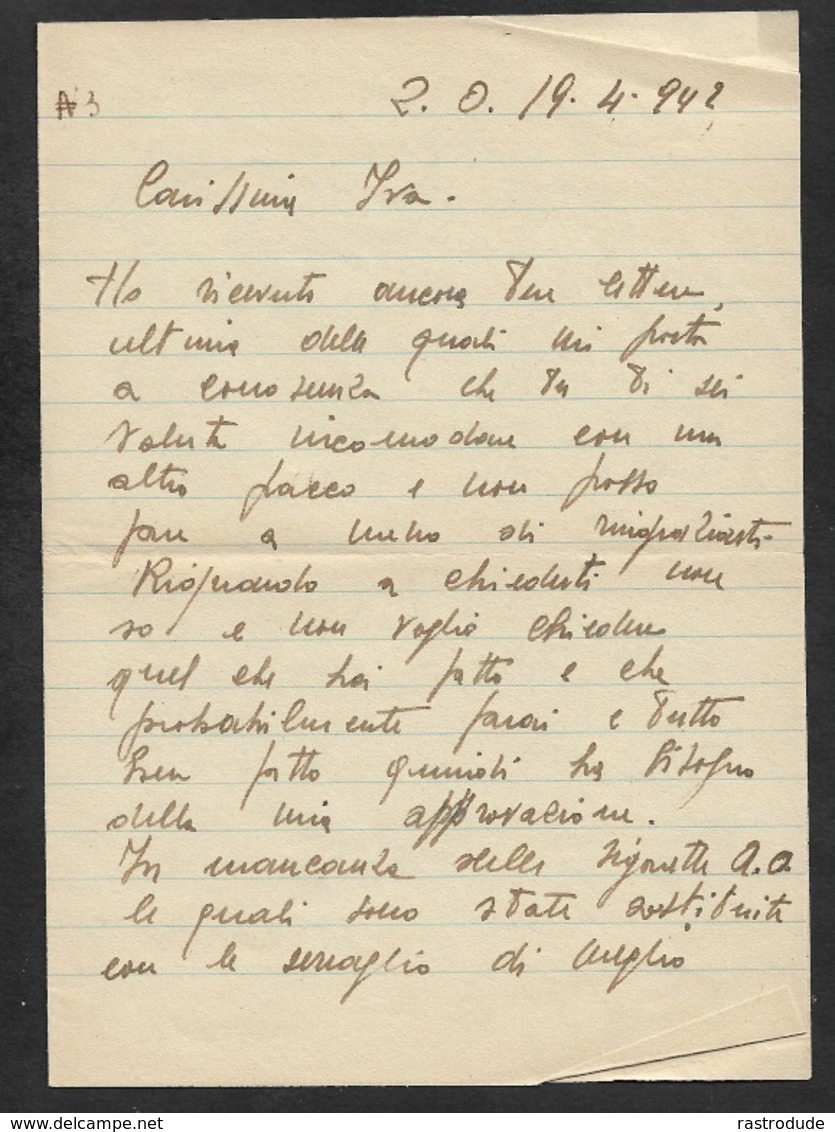 A 3
2. O. 19. 4. 942
Carissima Iva.
Ho ricevuto ancora due lettere,
ultima delle quali mi porta
a conoscenza che tu ti sei
voluta incomodare con un
altro pacco e non posso
fare a meno di ringraziarti.
Riguardo a chiederti non
so e non voglio chiedere
quel che hai fatto e che
probabilmente farai e tutto
ben fatto quindi ha bisogno
della mia approvazione.
In mancanza delle sigarette A.O.
le quali sono state sostituite
con le serraglio di meglio
delcampe.net
rastrodude